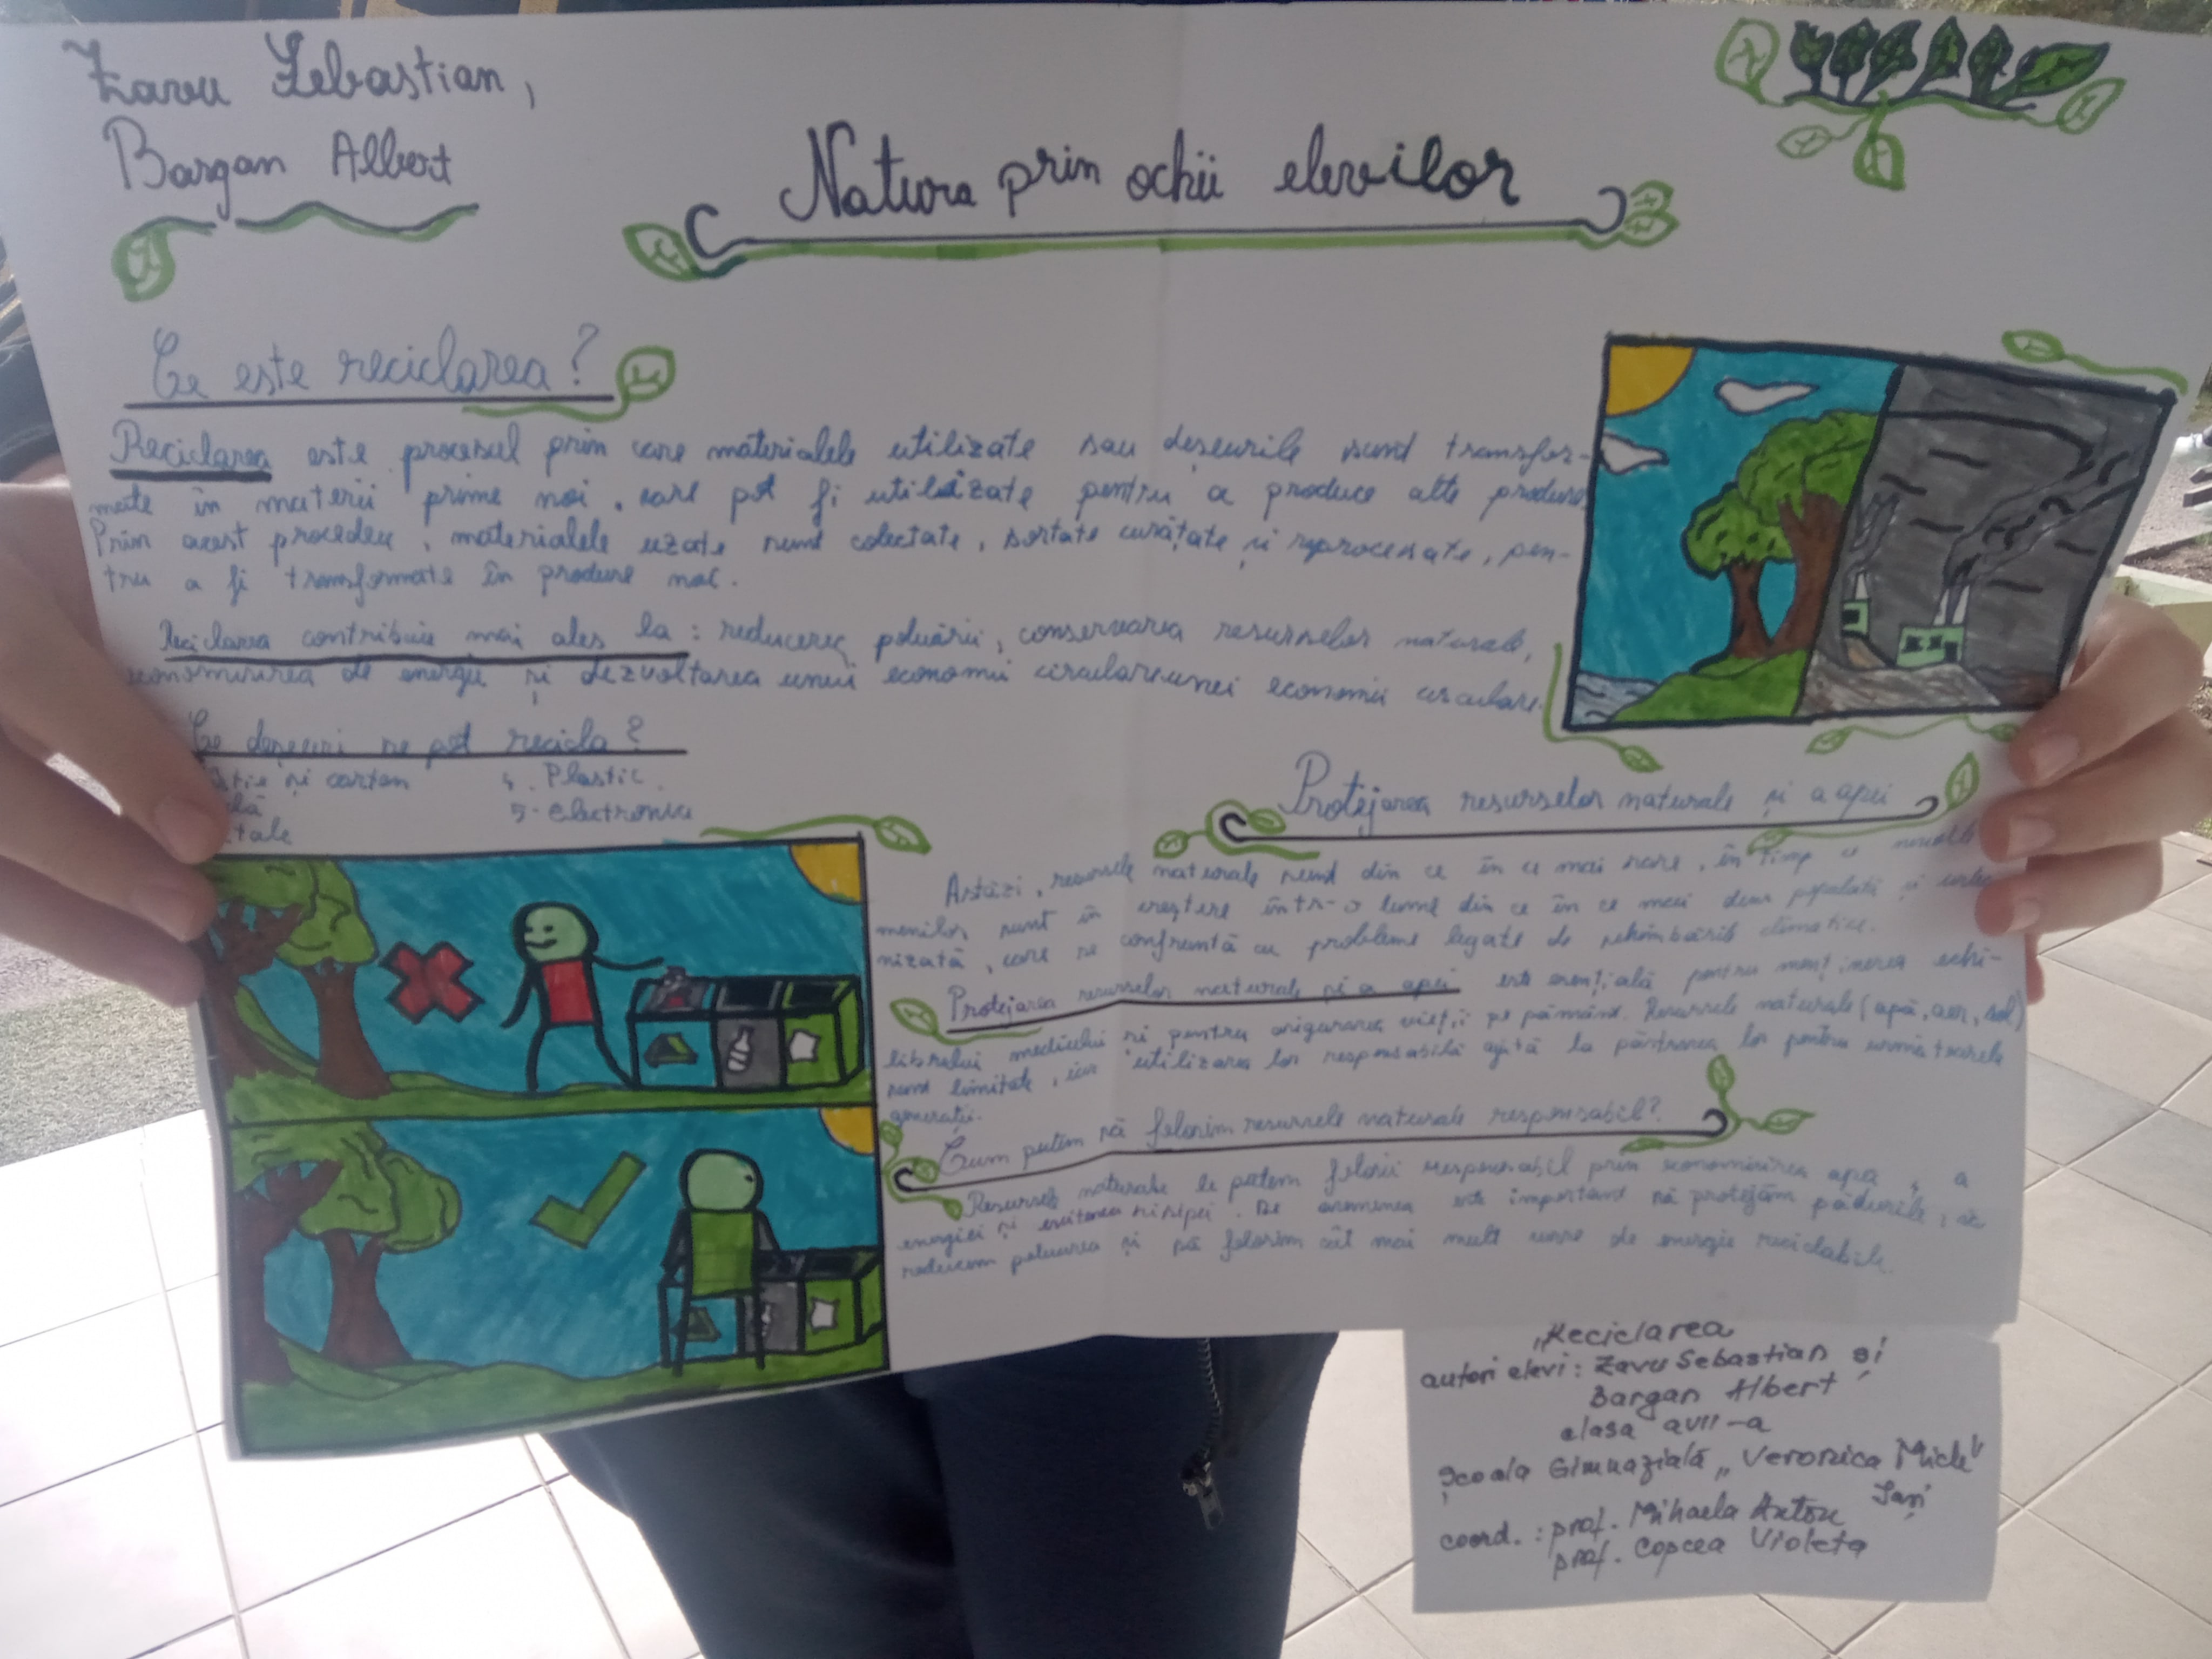 Zavu Sebastian,
Bargan Albert
Natura prin ochii elevilor
Ce este reciclarea?
Reciclarea este procesul prin care materialele utilizate sau deșeurile sunt transfor-
mate în materii prime noi, care pot fi utilizate pentru a produce alte produse
Prin acest procedeu, materialele uzate sunt colectate, sortate curățate și reprocesate, pen-
tru a fi transformate în produse noi.
Reciclarea contribuie mai ales la: reducerea poluării, conservarea resurselor naturale,
economisirea de energie și dezvoltarea unui economii circulare unei economii circulare.
Ce deșeuri se pot recicla?
și carton
4. Plastic.
5. electronice
Protejarea resurselor naturale și a apei
Astăzi, resursele naturale sunt din ce în ce mai rare, în timp ce nevoile
menilor sunt în creștere într-o lume din ce în ce mai dens populată și urba
nizată, care se confruntă cu probleme legate de schimbările climatice.
Protejarea resurselor naturale și a apei este esențială pentru menținerea echi-
librului mediului și pentru asigurarea vieții pe pământ. Resursele naturale (apă, aer, sol)
sunt limitate, iar utilizarea lor responsabilă ajută la păstrarea lor pentru următoarele
generații.
Cum putem să folosim resursele naturale responsabil?
Resursele naturale le putem folosi responsabil prin economisirea apei, a
energiei și evitarea risipei. De asemenea este important să protejăm pădurile, să
reducem poluarea și să folosim cât mai mult surse de energie reciclabile.
„Reciclarea
autori elevi: Zavu Sebastian și
Bargan Albert
clasa a VII-a
Școala Gimnazială „Veronica Micle"
Iași
coord.: prof. Mihaela Anton
prof. Copcea Violeta